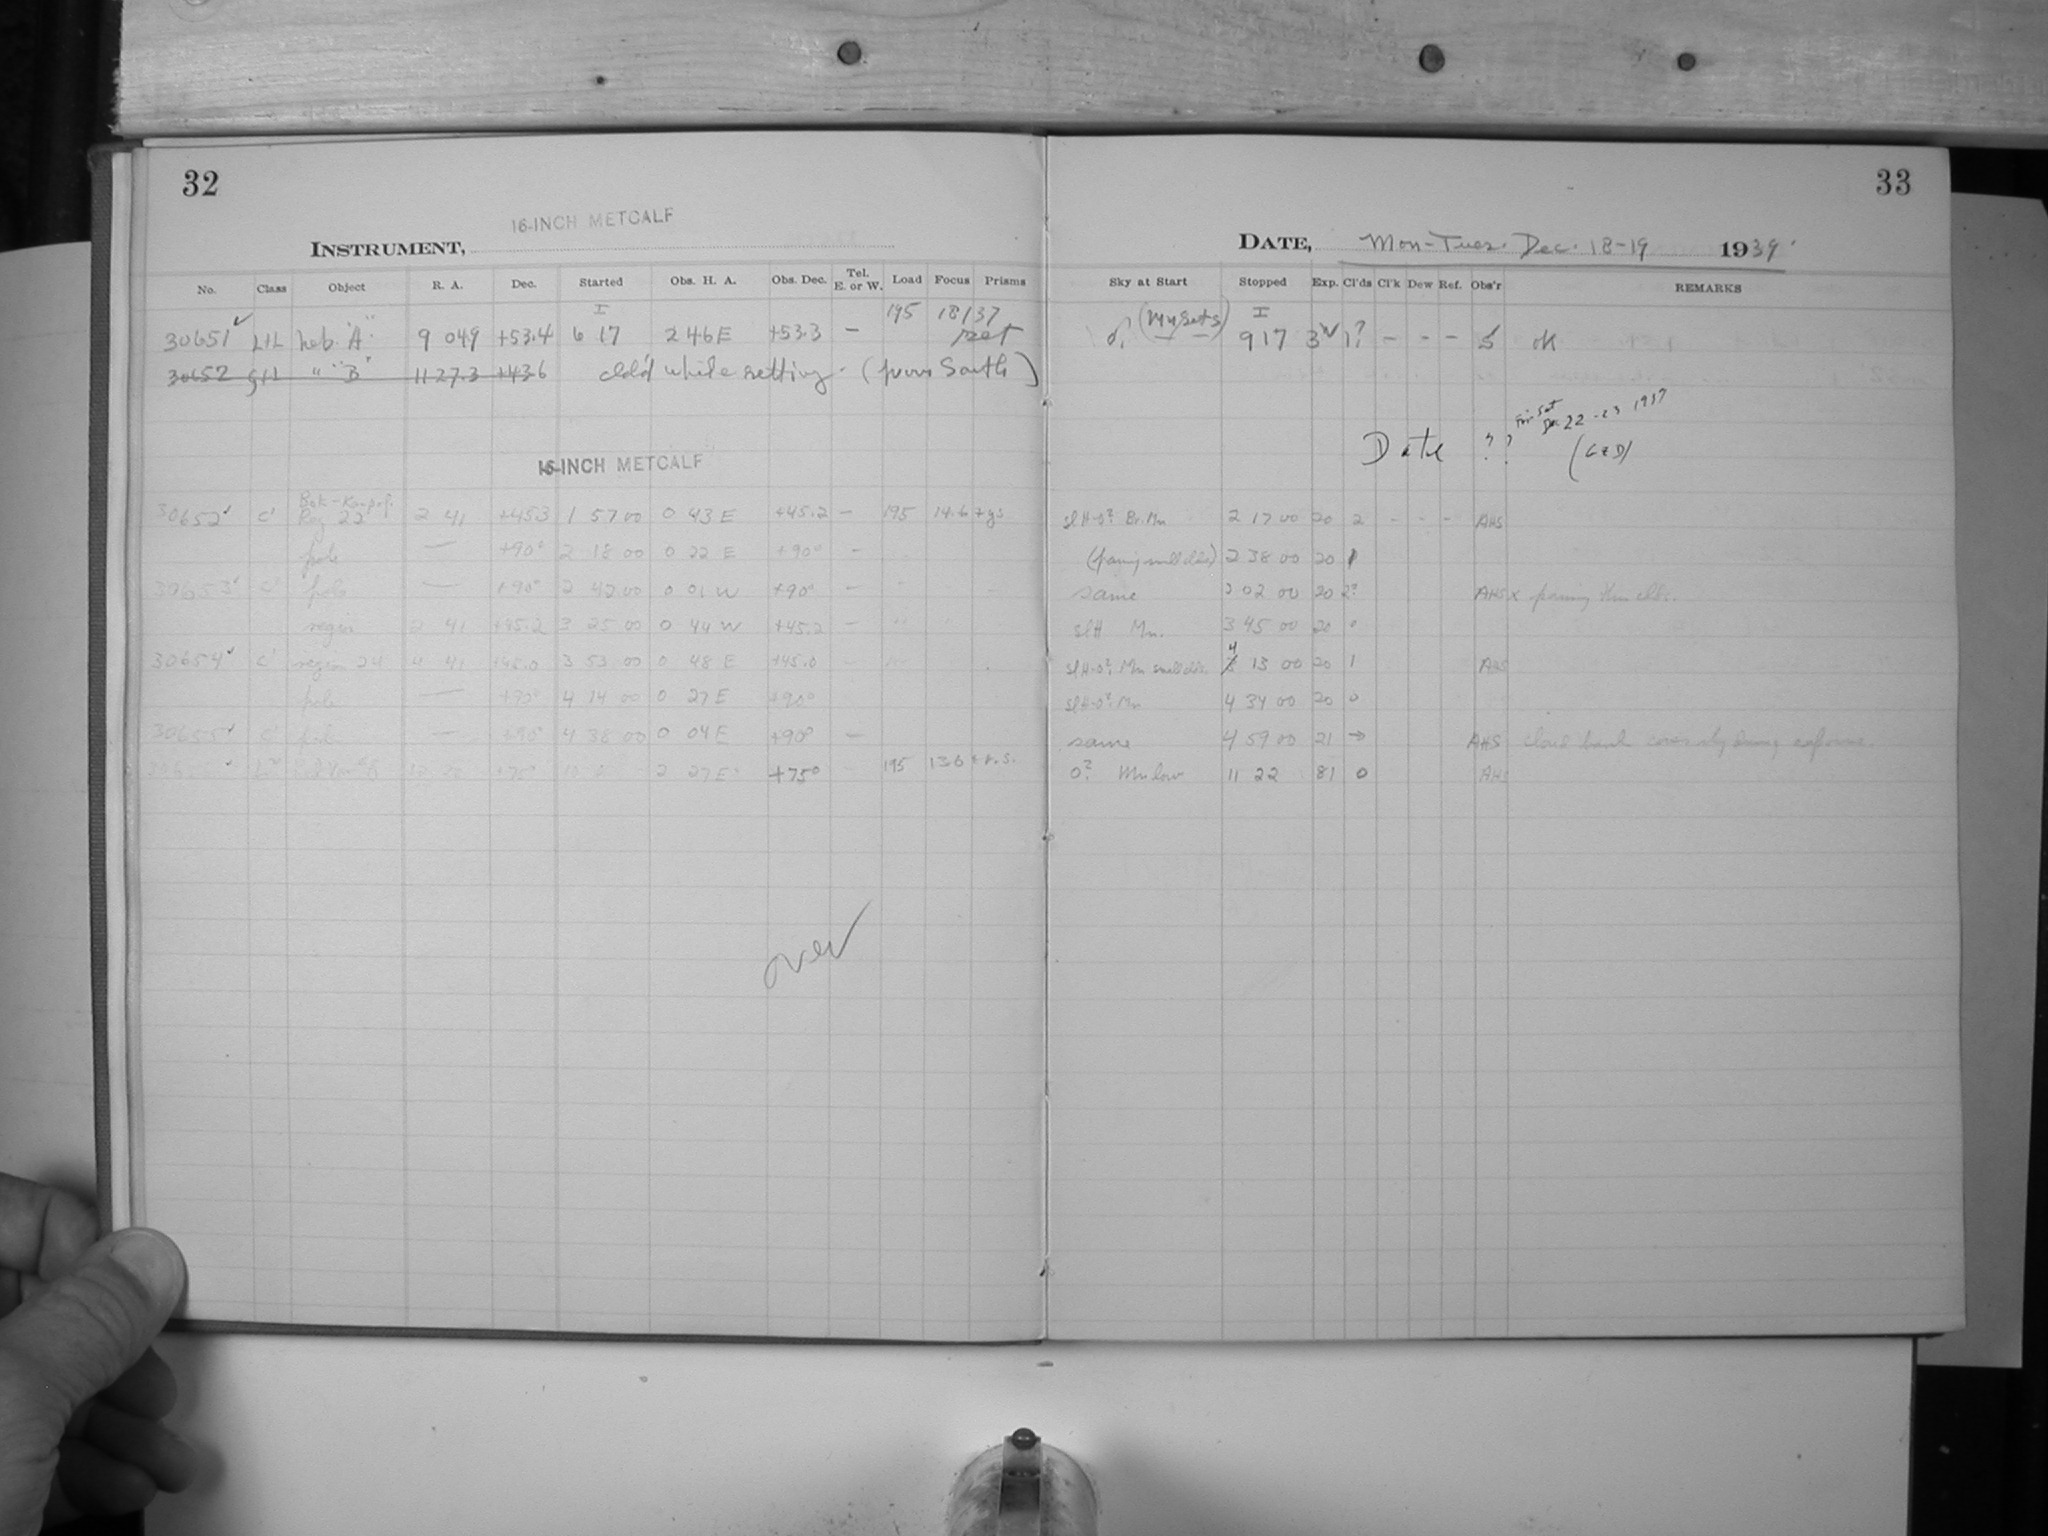 32
16-INCH METCALF
INSTRUMENT,
No. Class Object R. A. Dec. Started Obs. H. A. Obs. Dec. Tel. E. or W. Load Focus Prisms
I 195 18/37
30651 ✓ LIL neb. "A" 9 049 +53.4 6 17 2 46 E +53.3 — set
30652 " "B" 11 27.3 +43.6 cld'd while setting. (from South)
16-INCH METCALF
30652 ✓ C' Reg 22 2 41 +45.3 1 57 00 0 43 E +45.2 — 195 14.6
pole — +90° 2 18 00 0 22 E +90° —
30653 ✓ C' pole — +90° 2 42 00 0 01 W +90° —
region 2 41 +45.2 3 25 00 0 44 W +45.2 —
30654 ✓ C' region 24 4 41 +45.0 3 53 00 0 48 E +45.0
pole — +90° 4 14 00 0 27 E +90°
30655 ✓ C' pole — +90° 4 38 00 0 04 E +90° —
+75° 2 27 E +75° 195 13.6
over
33
DATE, Mon-Tues. Dec. 18-19 1939.
Sky at Start Stopped Exp. Cl'ds Cl'k Dew Ref. Obs'r REMARKS
I
(Mn sets) 9 17 1? - - - ok
Fri-Sat Dec 22-23 1939
Date ??
sl H-0? Br. Mn 2 17 00 20 2 - - - AHS
2 38 00 20
same 3 02 00 20 2? AHS x passing thin clds.
sl H Mn. 3 45 00 20 0
sl H-0? Mn small clds. 4 13 00 20 1 AHS
sl H-0? Mn 4 34 00 20 0
same 4 59 00 21 → AHS cloud bank during exposure.
0? Mn low 11 22 81 0 AHS